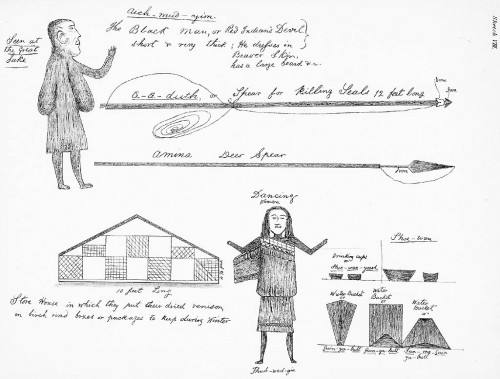 Sketch VIII.
Aich-mud-yim.
The Black Man, or Red Indian's Devil
short & very thick; He dresses in
Beaver Skin,
has a large beard &c.
Seen at
the Great
Lake
A-a-duth, or Spear for Killing Seals 12 feet long
bone
Iron
Amina Deer Spear
Iron
Dancing
Woman
Thub-wed-gie
10 feet Long
Store House in which they put their dried venison,
in birch rind boxes or packages to keep during Winter
Shoe-wan
Drinking Cups
or
Shoe-wan-yeesh
Water Bucket
or
Water
Bucket
or
Water
Bucket
or
Guin-ya-butt